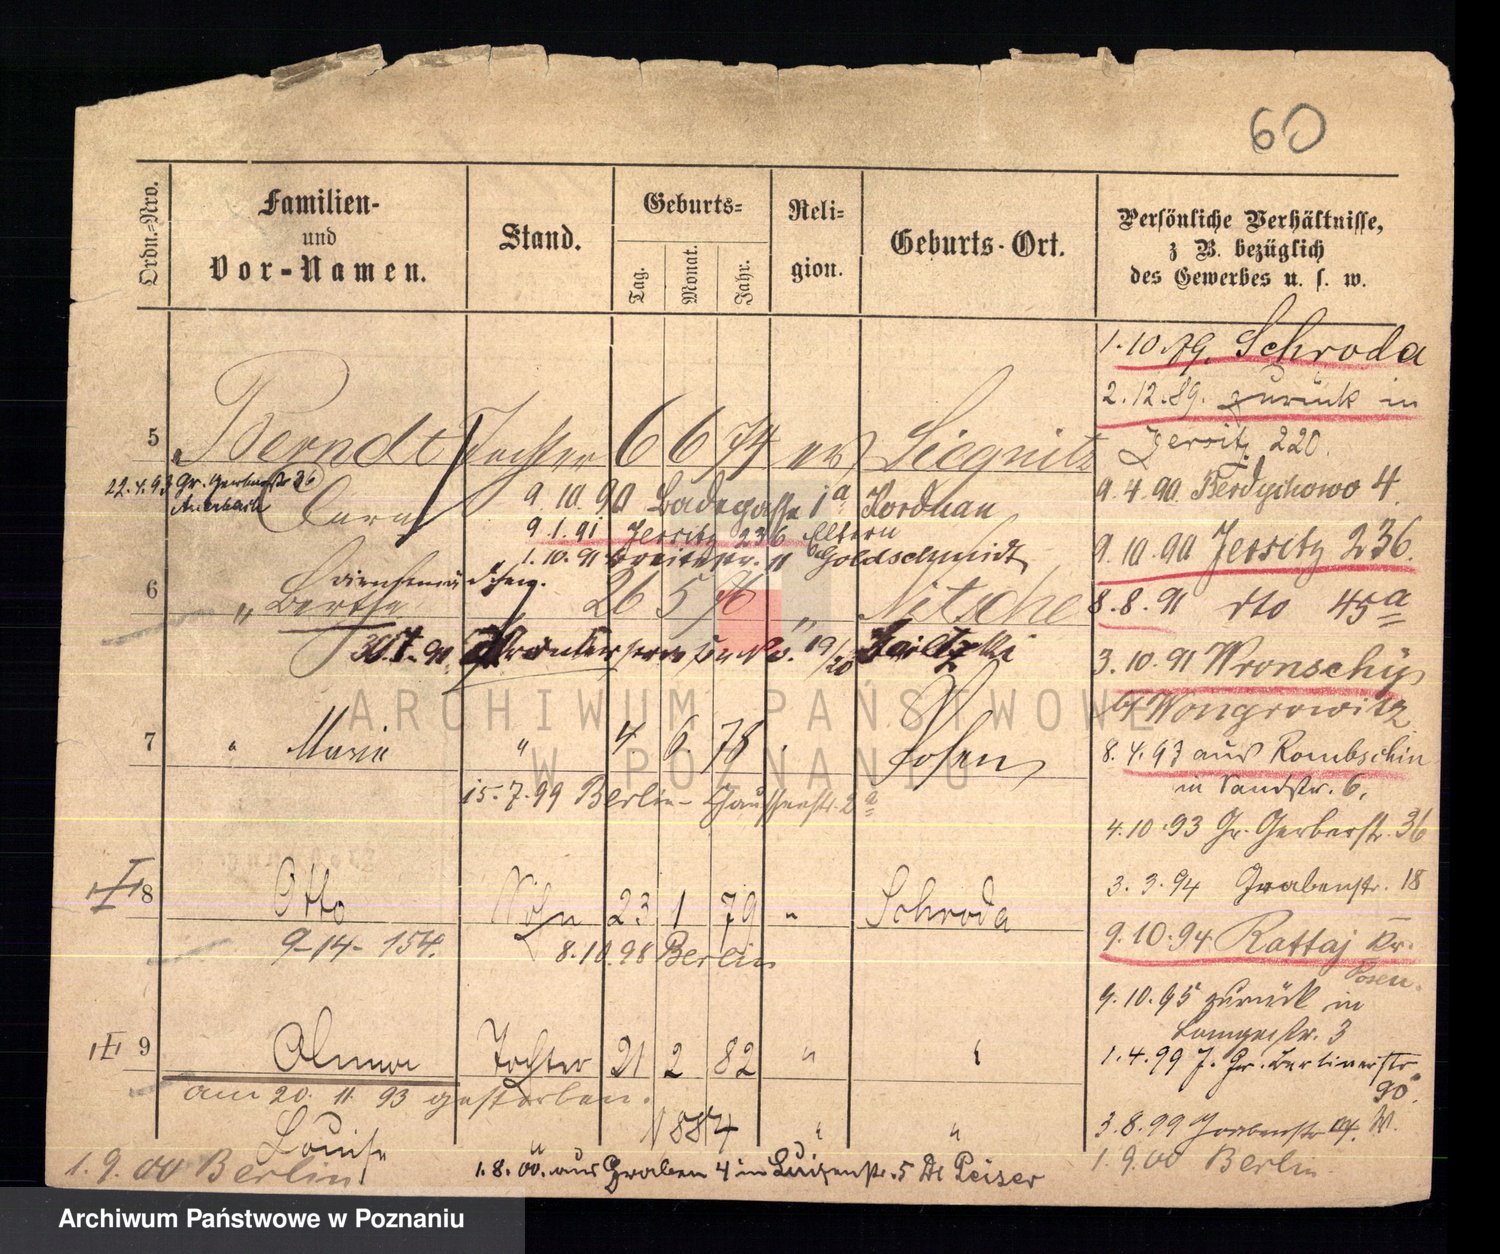 60
Ordn.-Nro.
Familien-
und
Vor-Namen.
Stand.
Geburts-
Tag.
Monat.
Jahr.
Reli-
gion.
Geburts-Ort.
Persönliche Verhältnisse,
z B. bezüglich
des Gewerbes u. s. w.
1.10.79. Schroda
2.12.89. zurück in
Jersitz 220.
5 Berndt Tochter 6 6 74 ev Liegnitz
22.4.93 Gr. Gerberstr 36
9.10.90 Badegasse 1a Kordnau
9.4.90 Berdychowo 4.
9.1.91 Jersitz 236 Eltern
1.10.91 Breitestr. 11 b Goldschmidt
9.10.90 Jersitz 236.
Dienstmädchen.
6 " Bertha 26 5 76 " Nitsche
8.8.91 dto 45a
No. 19/20
3.10.91 Wronschyn
b/ Wongrowitz
7 " Marie " 4 6. 78 " Posen
8.4.93 aus Rombschin
in Sandstr. 6.
15.7.99 Berlin- 2a
4.10.93 Gr. Gerberstr. 36
3.3.94 Grabenstr. 18
8 Otto Sohn 23 1 79 " Schroda
9-14-154.
8.10.98 Berlin
9.10.94 Rattaj Kr.
Posen.
9.10.95 zurück in
Langestr. 3
9 Alma Tochter 21 2 82 " "
1.4.99 J. Gr. Berlinerstr
90.
am 20. 11. 93 gestorben.
Louise " 1884 " "
3.8.99 Grabenstr 4. W.
1.9.00 Berlin
1.8.00. aus Graben 4 in Luisenstr. 5 Dr Peiser
1.9.00 Berlin.
ARCHIWUM PAŃSTWOWE
W POZNANIU
Archiwum Państwowe w Poznaniu